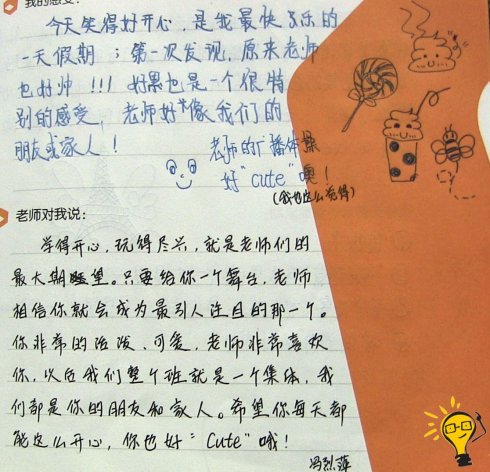 我的感受:
今天笑得好开心,是我最快乐的
一天假期;第一次发现,原来老师
也好帅!!!好累也是一个很特
别的感受,老师好像我们的
朋友或家人!
老师的广播体操
好"cute"噢!
(我也这么觉得)
老师对我说:
学得开心,玩得尽兴,就是老师们的
最大期望。只要给你一个舞台,老师
相信你就会成为最引人注目的那一个。
你非常的活泼、可爱,老师非常喜欢
你,以后我们整个班就是一个集体,我
们都是你的朋友和家人。希望你每天都
能这么开心,你也好"Cute"哦!
冯烈萍